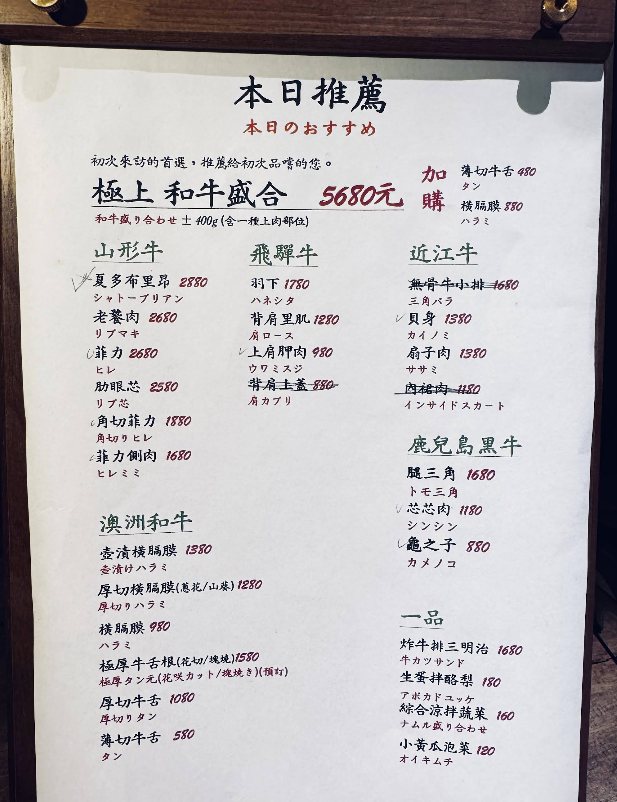 本日推薦
本日のおすすめ
初次來訪的首選，推薦給初次品嚐的您。
極上 和牛盛合 5680元
和牛盛り合わせ ± 400g (含一種上肉部位)
加購
薄切牛舌 480
タン
橫膈膜 880
ハラミ
山形牛
夏多布里昂 2880
シャトーブリアン
老饕肉 2680
リブマキ
菲力 2680
ヒレ
肋眼芯 2580
リブ芯
角切菲力 1880
角切りヒレ
菲力側肉 1680
ヒレミミ
飛驒牛
羽下 1780
ハネシタ
背肩里肌 1280
肩ロース
上肩胛肉 980
ウワミスジ
背肩上蓋 880
肩カブリ
近江牛
無骨牛小排 1680
三角バラ
貝身 1380
カイノミ
扇子肉 1380
ササミ
內裙肉 1180
インサイドスカート
鹿兒島黑牛
腿三角 1680
トモ三角
芯芯肉 1180
シンシン
龜之子 880
カメノコ
澳洲和牛
壺漬橫膈膜 1380
壺漬けハラミ
厚切橫膈膜(蔥花/山葵) 1280
厚切りハラミ
橫膈膜 980
ハラミ
極厚牛舌根(花切/塊燒) 1580
極厚タン元(花咲カット/塊焼き)(預訂)
厚切牛舌 1080
厚切りタン
薄切牛舌 580
タン
一品
炸牛排三明治 1680
牛カツサンド
生蛋拌酪梨 180
アボカドユッケ
綜合涼拌蔬菜 160
ナムル盛り合わせ
小黃瓜泡菜 120
オイキムチ